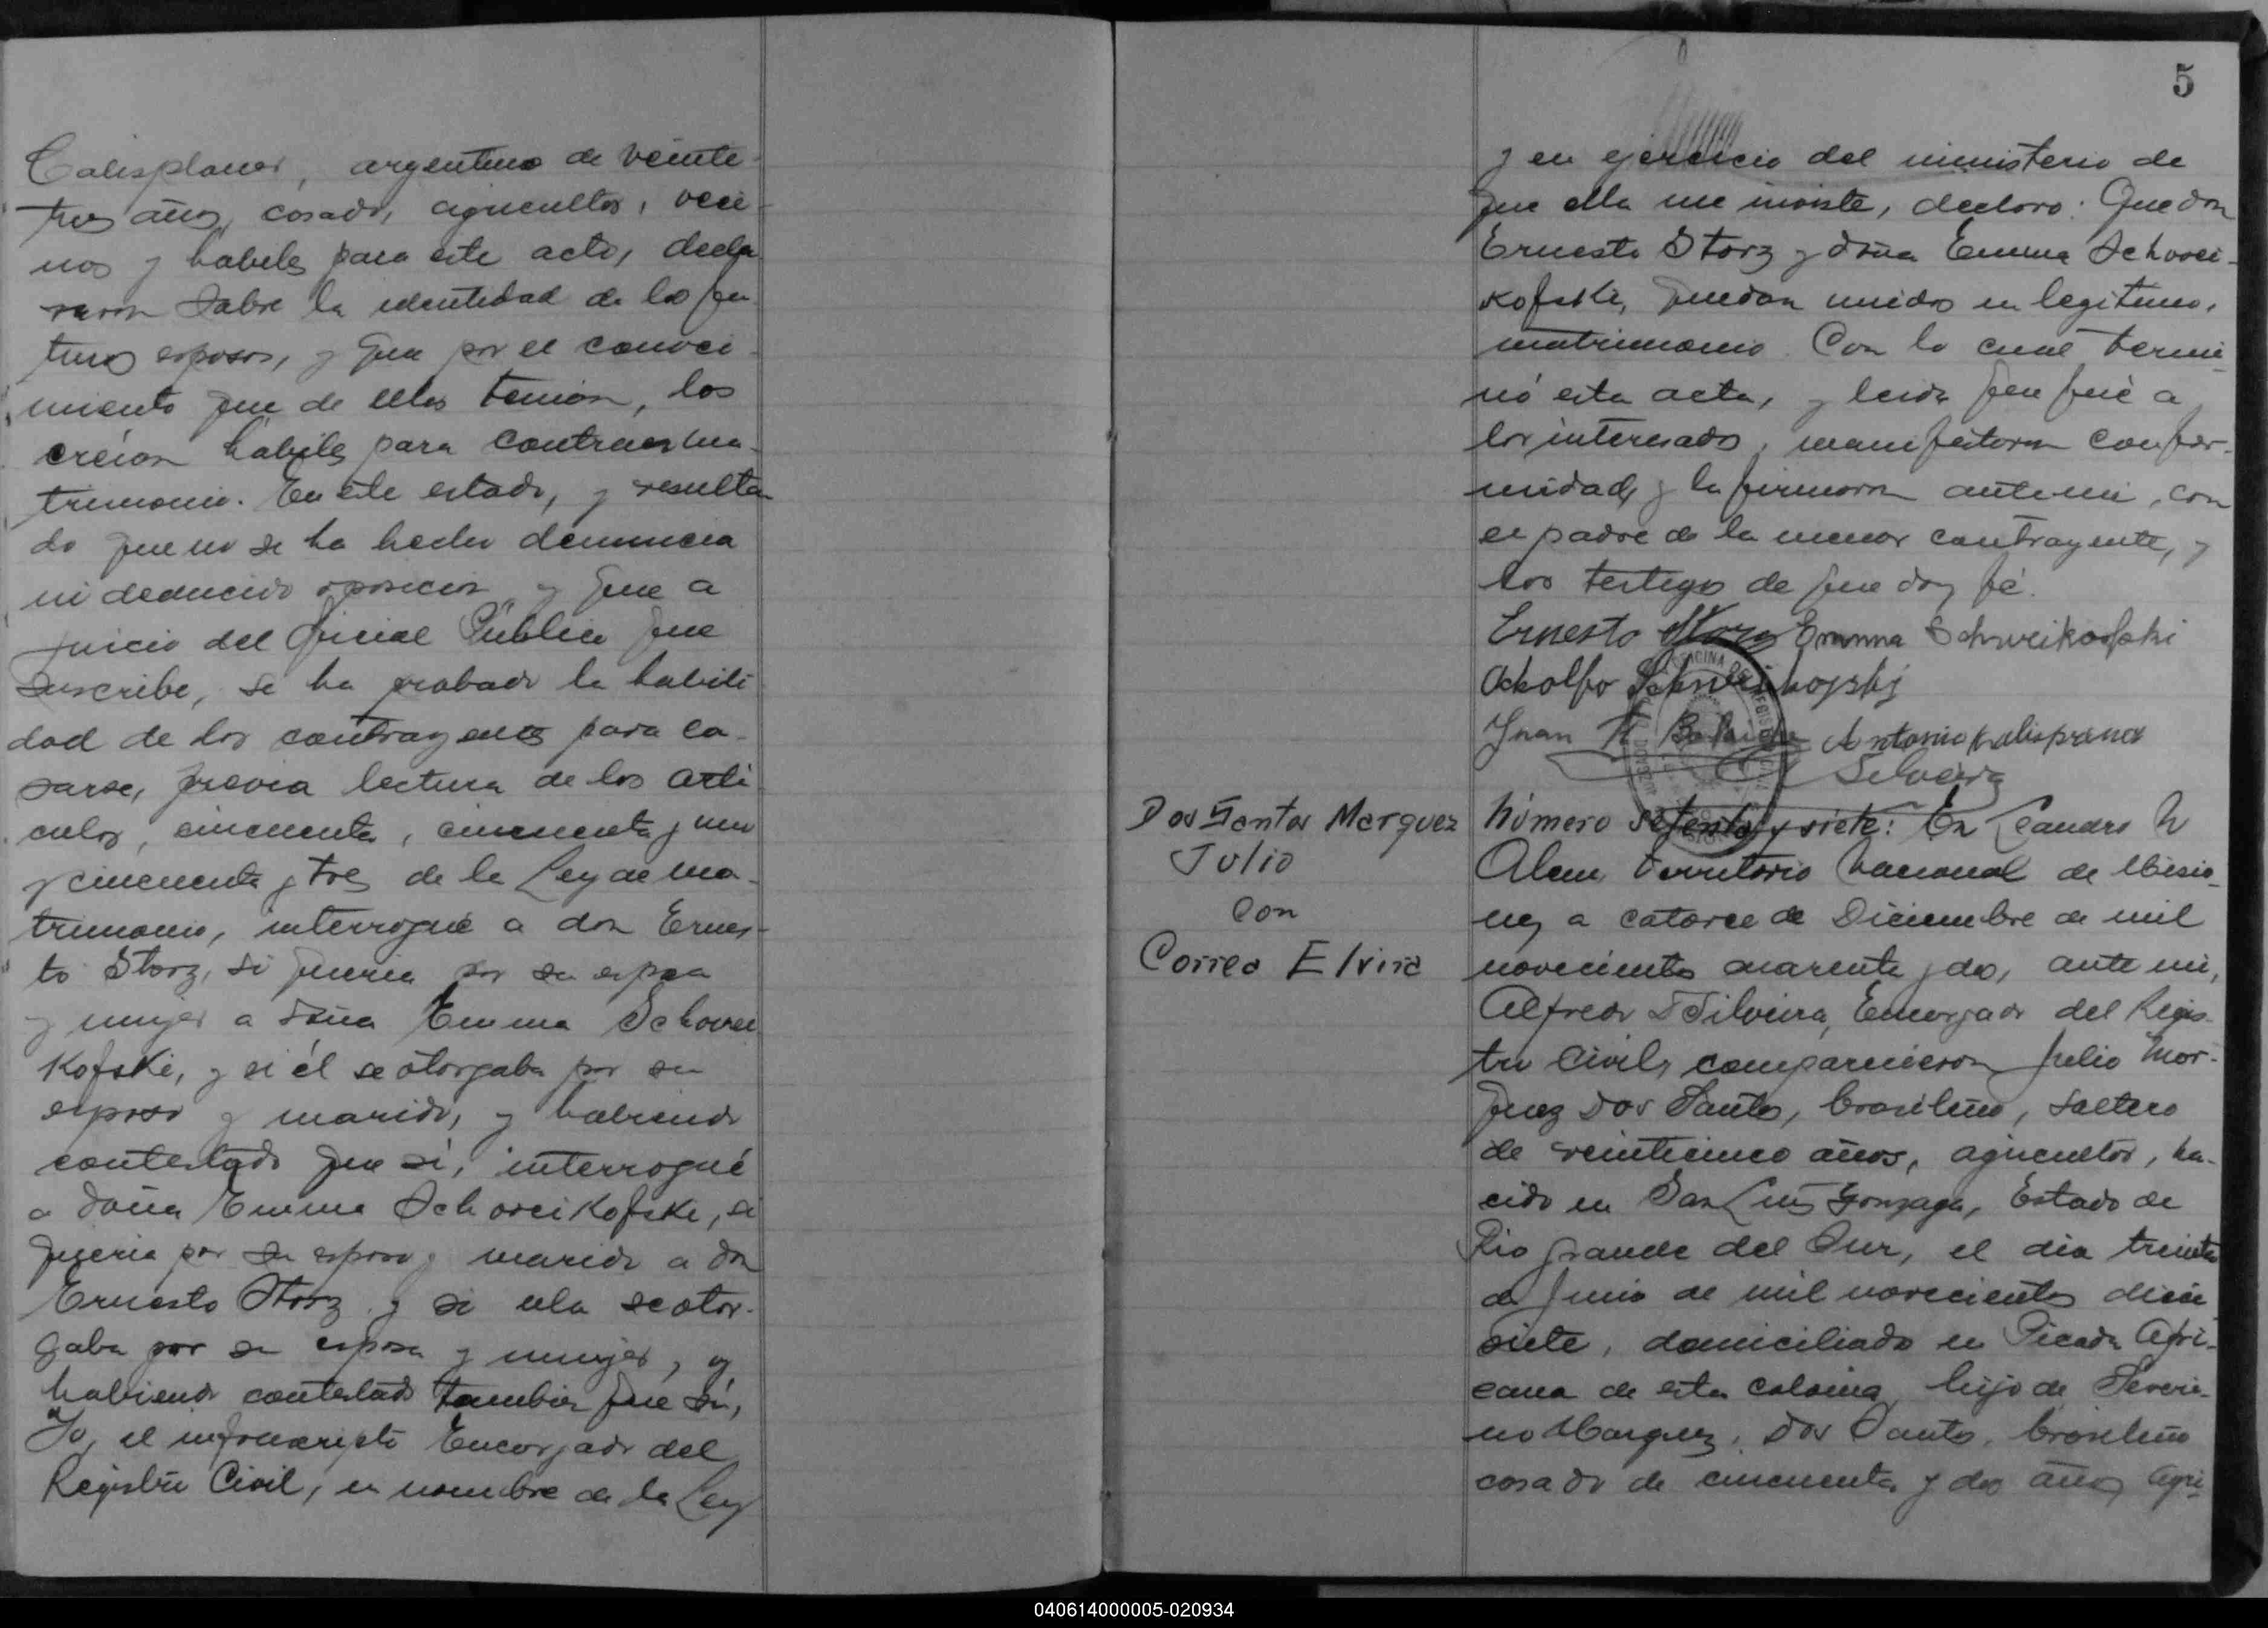 Calisplaner, argentino de veinte
tres años, casado, agricultor, veci
nos y habiles para este acto, decla
raron sobre la identidad de los fu
turos esposos, y que por el conoci
miento que de ellos tenian, los
creian hábiles para contraer ma
trimonio. En este estado, y resultan
do que no se ha hecho denuncia
ni deducido oposicion y que a
juicio del Oficial Público que
suscribe, se ha probado la habili
dad de los contrayentes para ca-
sarse, previa lectura de los arti
culos, cincuenta, cincuenta y uno
y cincuenta y tres de la Ley de ma-
trimonio, interrogué a don Ernes-
to Storz, si queria por su esposa
y mujer a doña Emma Schwei
Kofski, y si él se otorgaba por su
esposo y marido, y habiendo
contestado que si, interrogué
a doña Emma Schweikofski, si
queria por su esposo y marido a don
Ernesto Storz y si ella se otor-
gaba por su esposa y mujer, y
habiendo contestado tambien que si,
Yo, el infrascripto Encargado del
Registro Civil, en nombre de la Ley
5
y en ejercicio del ministerio de
que ella me inviste, declaro: Que don
Ernesto Storz y doña Emma Schwei-
kofski, quedan unidos en legitimo,
matrimonio. Con lo cual termi
nó esta acta, y leida que fué a
los interesados, manifestaron confor-
midad, y la firmaron ante mi, con
el padre de la menor contrayente, y
los testigos de que doy fé.
Ernesto Storz Emma Schweikofski
Adolfo Schweikofski
Juan Antonio Kalisprener
Silveira
Dos Santos Marquez
Julio
con
Correa Elvira
Número setenta y siete: En Leandro N
Alem Territorio Nacional de Misio-
nes a catorce de Diciembre de mil
novecientos cuarenta y dos, ante mi,
Alfredo T Silveira, Encargado del Regis-
tro Civil, comparecieron Julio Mar-
quez Dos Santos, brasileño, soltero
de veinticinco años, agricultor, na-
cido en San Luis Gonzaga, Estado de
Rio grande del Sur, el dia treinta
de Junio de mil novecientos dieci
siete, domiciliado en Picada Afri-
cana de esta colonia, hijo de Severi-
no Marquez, Dos Santos, brasileño
casado de cincuenta y dos años agri-
040614000005-020934